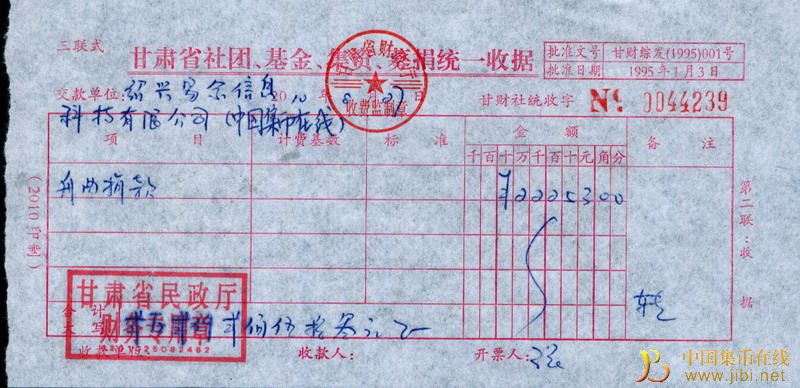 三联式
甘肃省社团、基金、集资、募捐统一收据
批准文号 甘财综发(1995)001号
批准日期 1995年1月3日
甘肃省财政厅
收费监制章
交款单位:绍兴易余信息 20 年 8 27日
甘财社统收字 №. 0044239
科技有限公司(中国集币在线)
项 目 计费基数 标 准 金 额 备 注
千百十万千百十元角分
舟曲捐款 ¥2225300
(2010印制)
第二联:收据
甘肃省民政厅
财务专用章
合计大写 贰佰伍拾叁元正
转
收款单位
收款人: 开票人:
中国集币在线
www.jibi.net